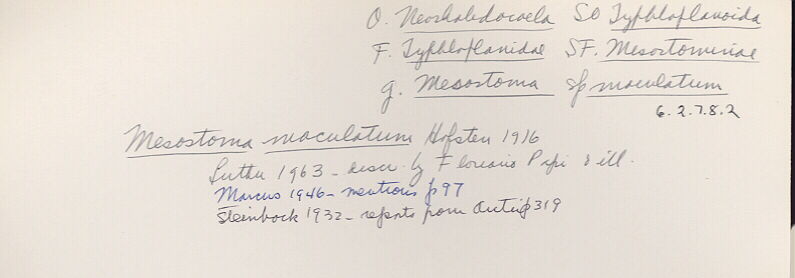 O. Neorhabdocoela SO Typhloplanoida
F. Typhloplanidae SF. Mesostominae
g. Mesostoma sp maculatum
6.2.7.8.2
Mesostoma maculatum Hofsten 1916
Luther 1963 - descr. by Floriano Papi & ill.
Marcus 1946 - mentions p97
Steinbock 1932 - reports from p319